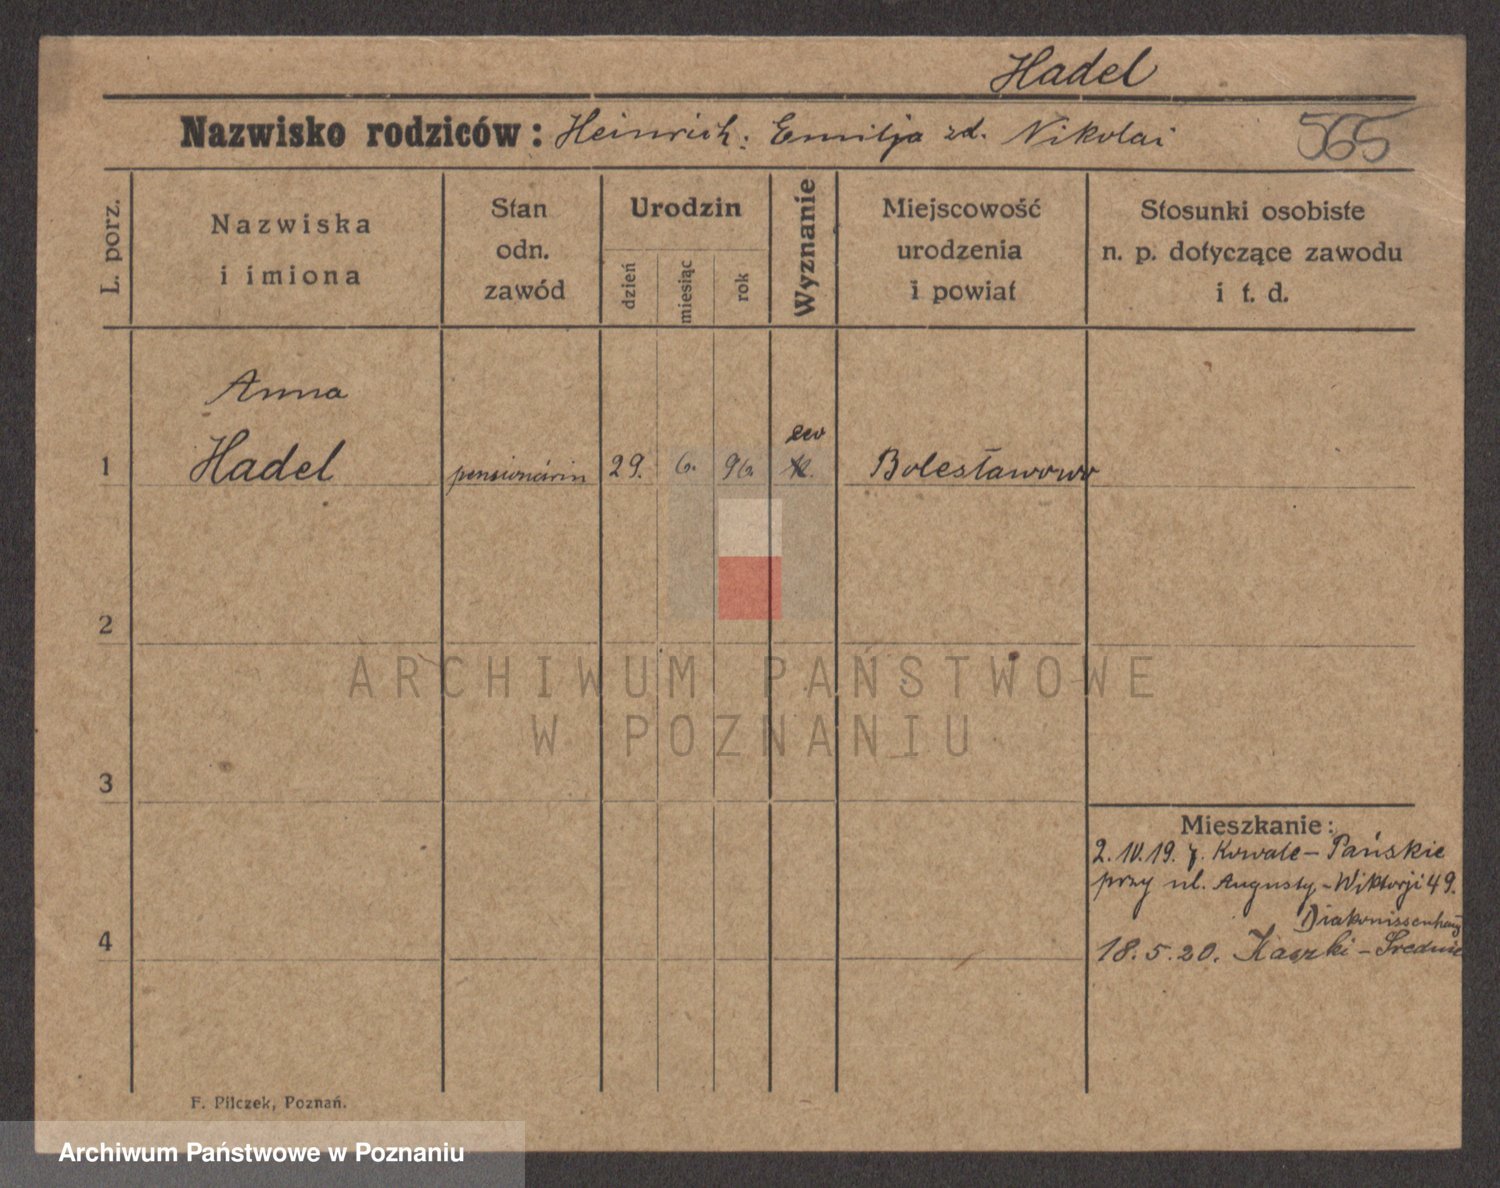 Hadel
Nazwisko rodziców: Heinrich. Emilja zd. Nikolai
565
L. porz.
Nazwiska
i imiona
Stan
odn.
zawód
Urodzin
dzień
miesiąc
rok
Wyznanie
Miejscowość
urodzenia
i powiat
Stosunki osobiste
n. p. dotyczące zawodu
i t. d.
Anna
ew
1 Hadel pensionärin 29. 6. 96. k. Bolesławowo
2
ARCHIWUM PAŃSTWOWE
W POZNANIU
3
Mieszkanie:
2.IV.19. z. Kowale-Pańskie
przy ul. Augusty-Wiktorji 49.
Diakonissenhaus
4
18.5.20. Kaszki-Średnie
F. Pilczek, Poznań.
Archiwum Państwowe w Poznaniu